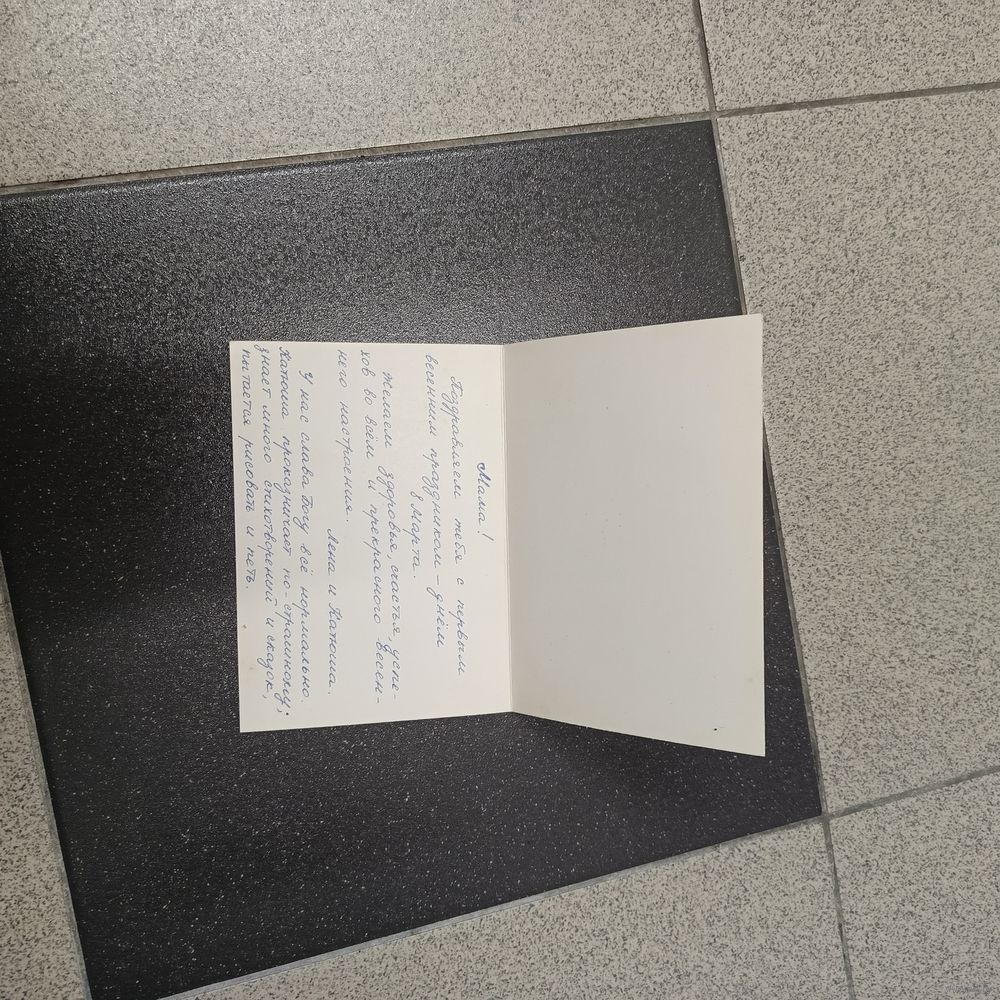 Мама!
Поздравляем тебя с первым
весенним праздником – днём
8 Марта.
Желаем здоровья, счастья, успе-
хов во всём и прекрасного весен-
него настроения.
Лена и Катюша.
У нас слава Богу всё нормально.
Катюша проказничает по-страшному,
знает много стихотворений и сказок,
пытается рисовать и петь.